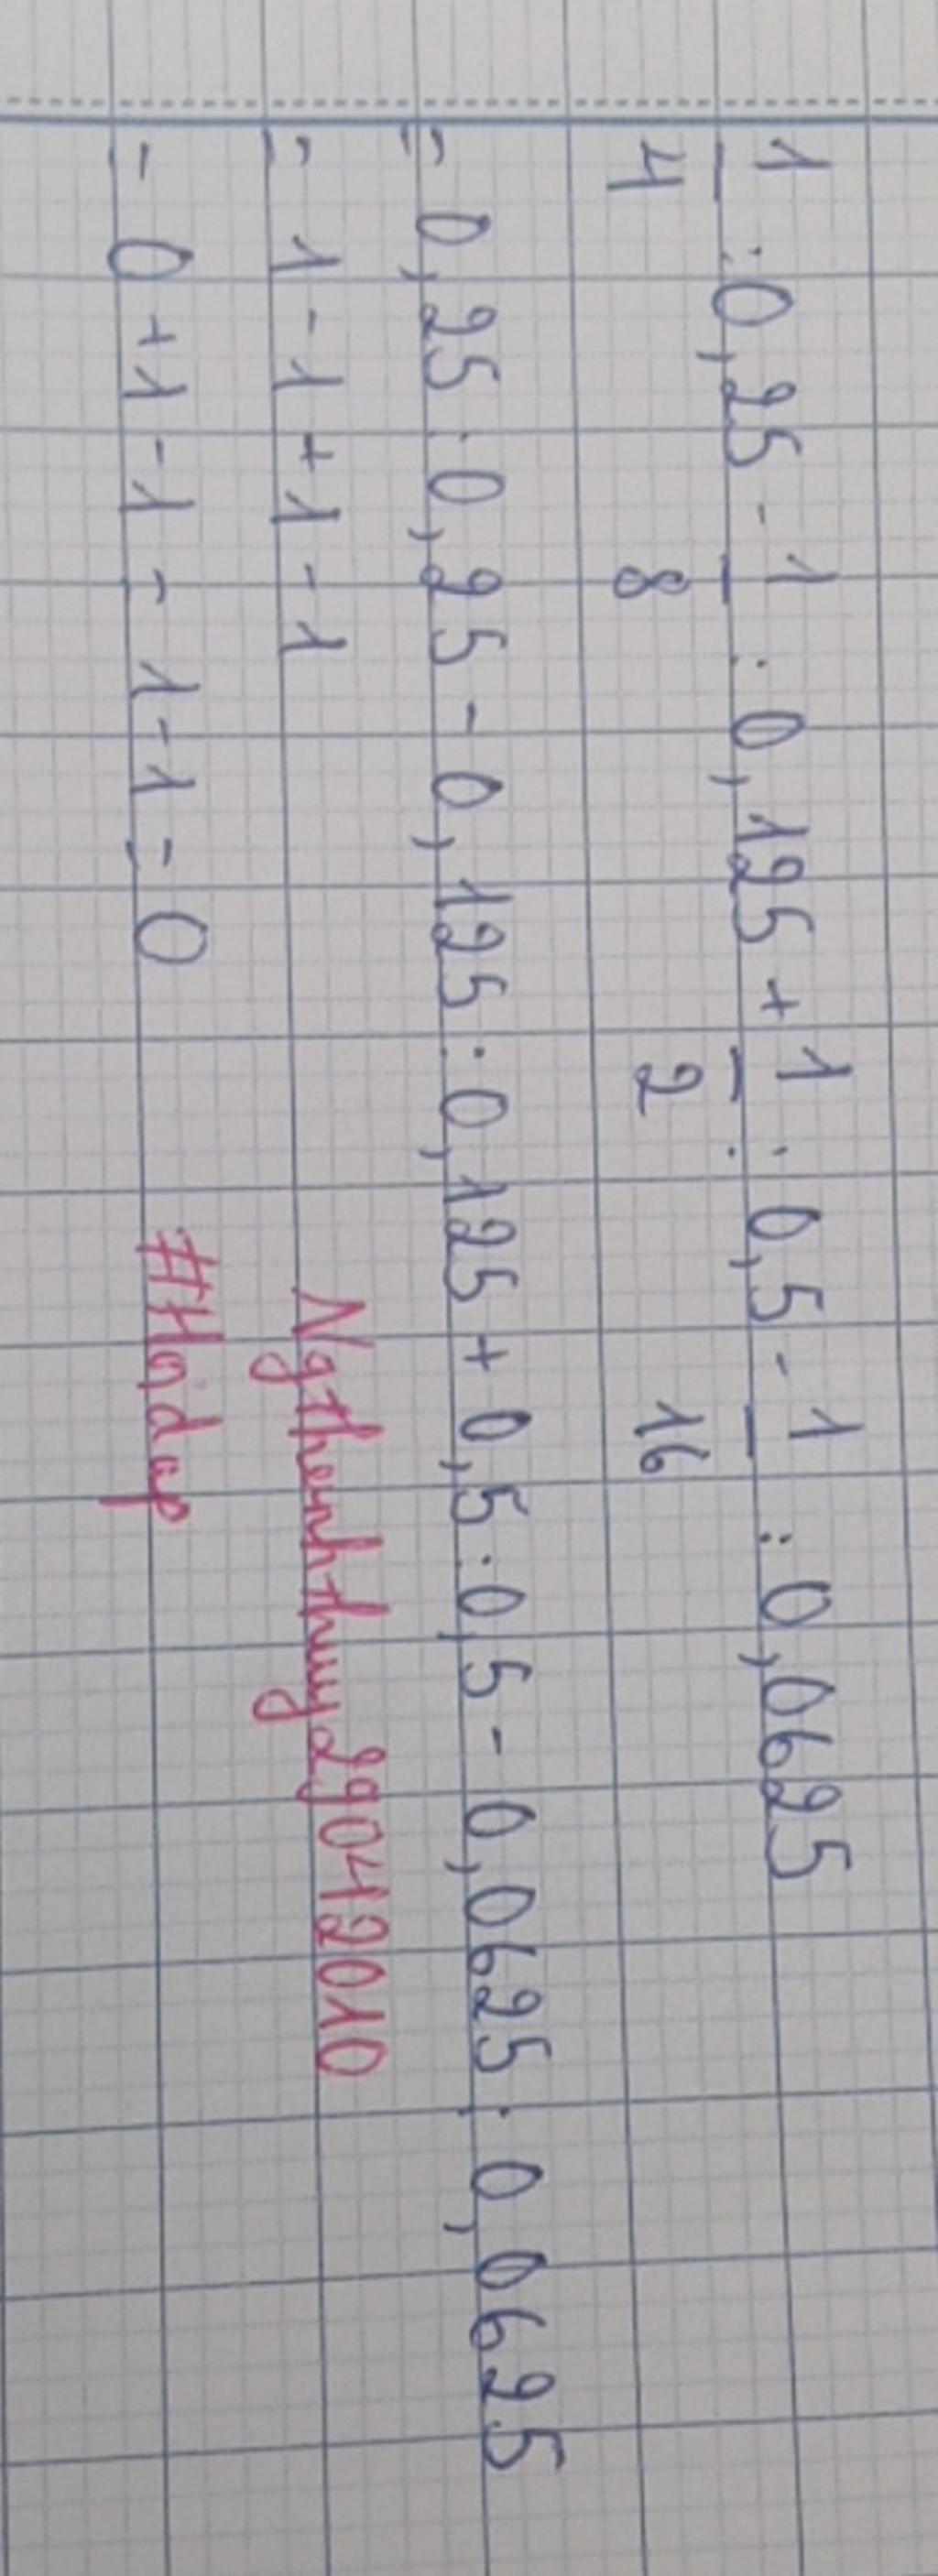 1/4 : 0,25 - 1/8 : 0,125 + 1/2 : 0,5 - 1/16 : 0,0625
= 0,25 : 0,25 - 0,125 : 0,125 + 0,5 : 0,5 - 0,0625 : 0,0625
= 1 - 1 + 1 - 1
= 0 + 1 - 1 = 1 - 1 = 0
Ngthenhthuy29042010
#Hoidap